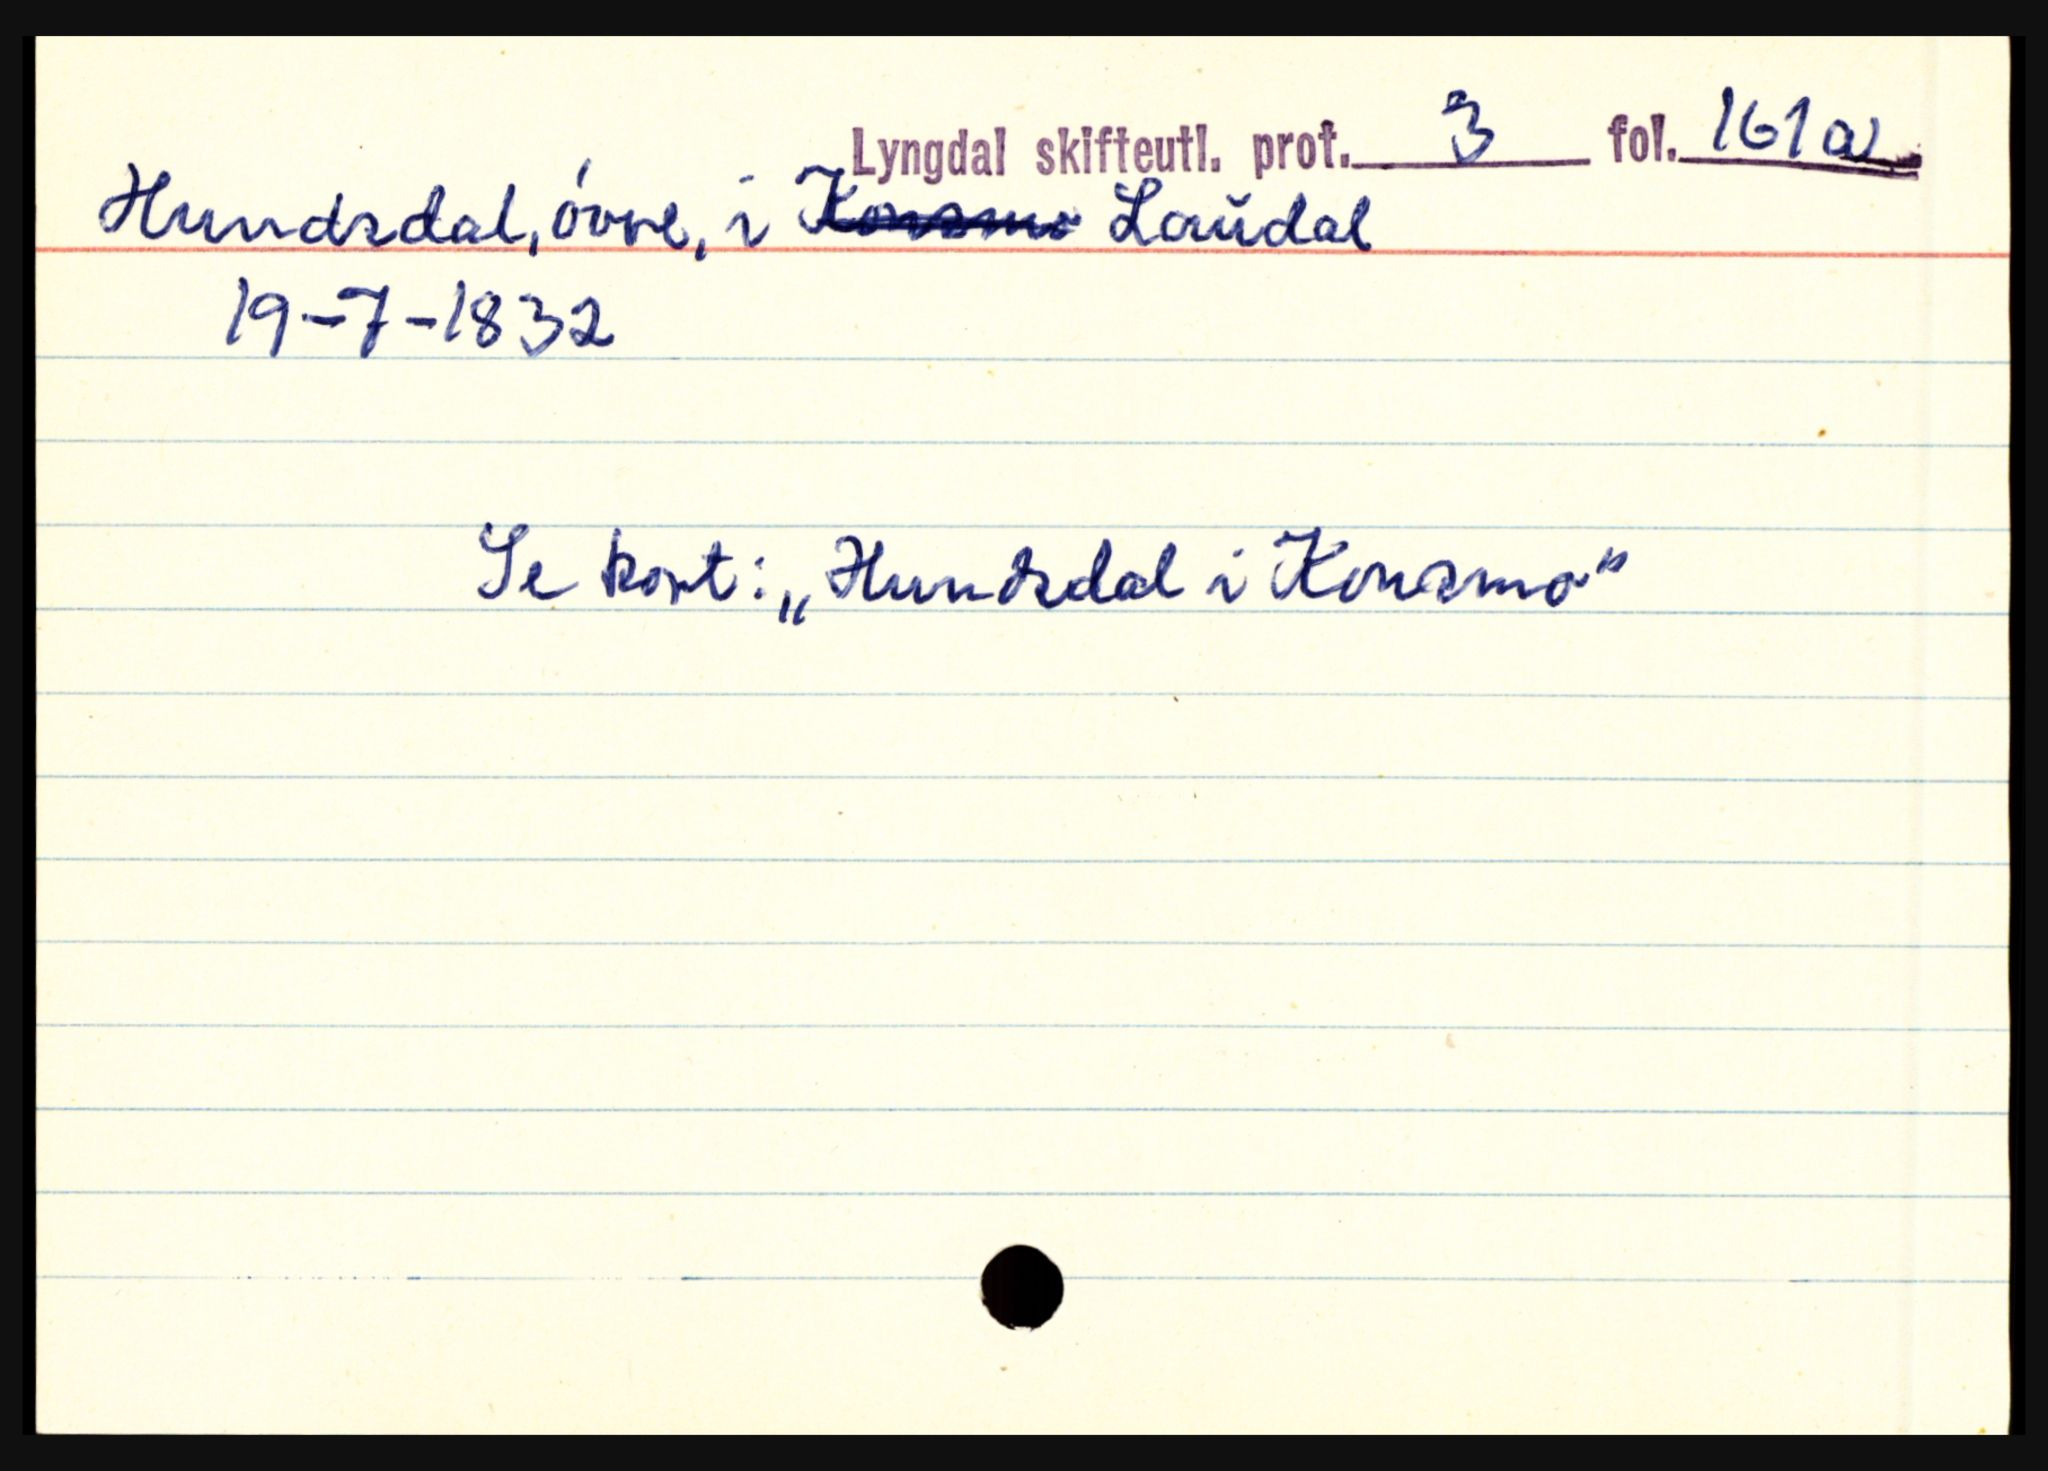 Lyngdal skifteutl. prot. 3 fol. 161a
Hundsdal, óvre, i Konsmo Laudal
19-7-1832
Se kort: „Hundsdal i Konsmo“